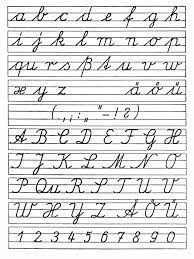 a b c d e f g h
i j k l m n o p
qu r s ß t u v w
x y z ä ö ü
( . , ; : „ “ – ! ? )
A B C D E F G H
I J K L M N O
P Qu R S T U V
W X Y Z Ä Ö Ü
1 2 3 4 5 6 7 8 9 0